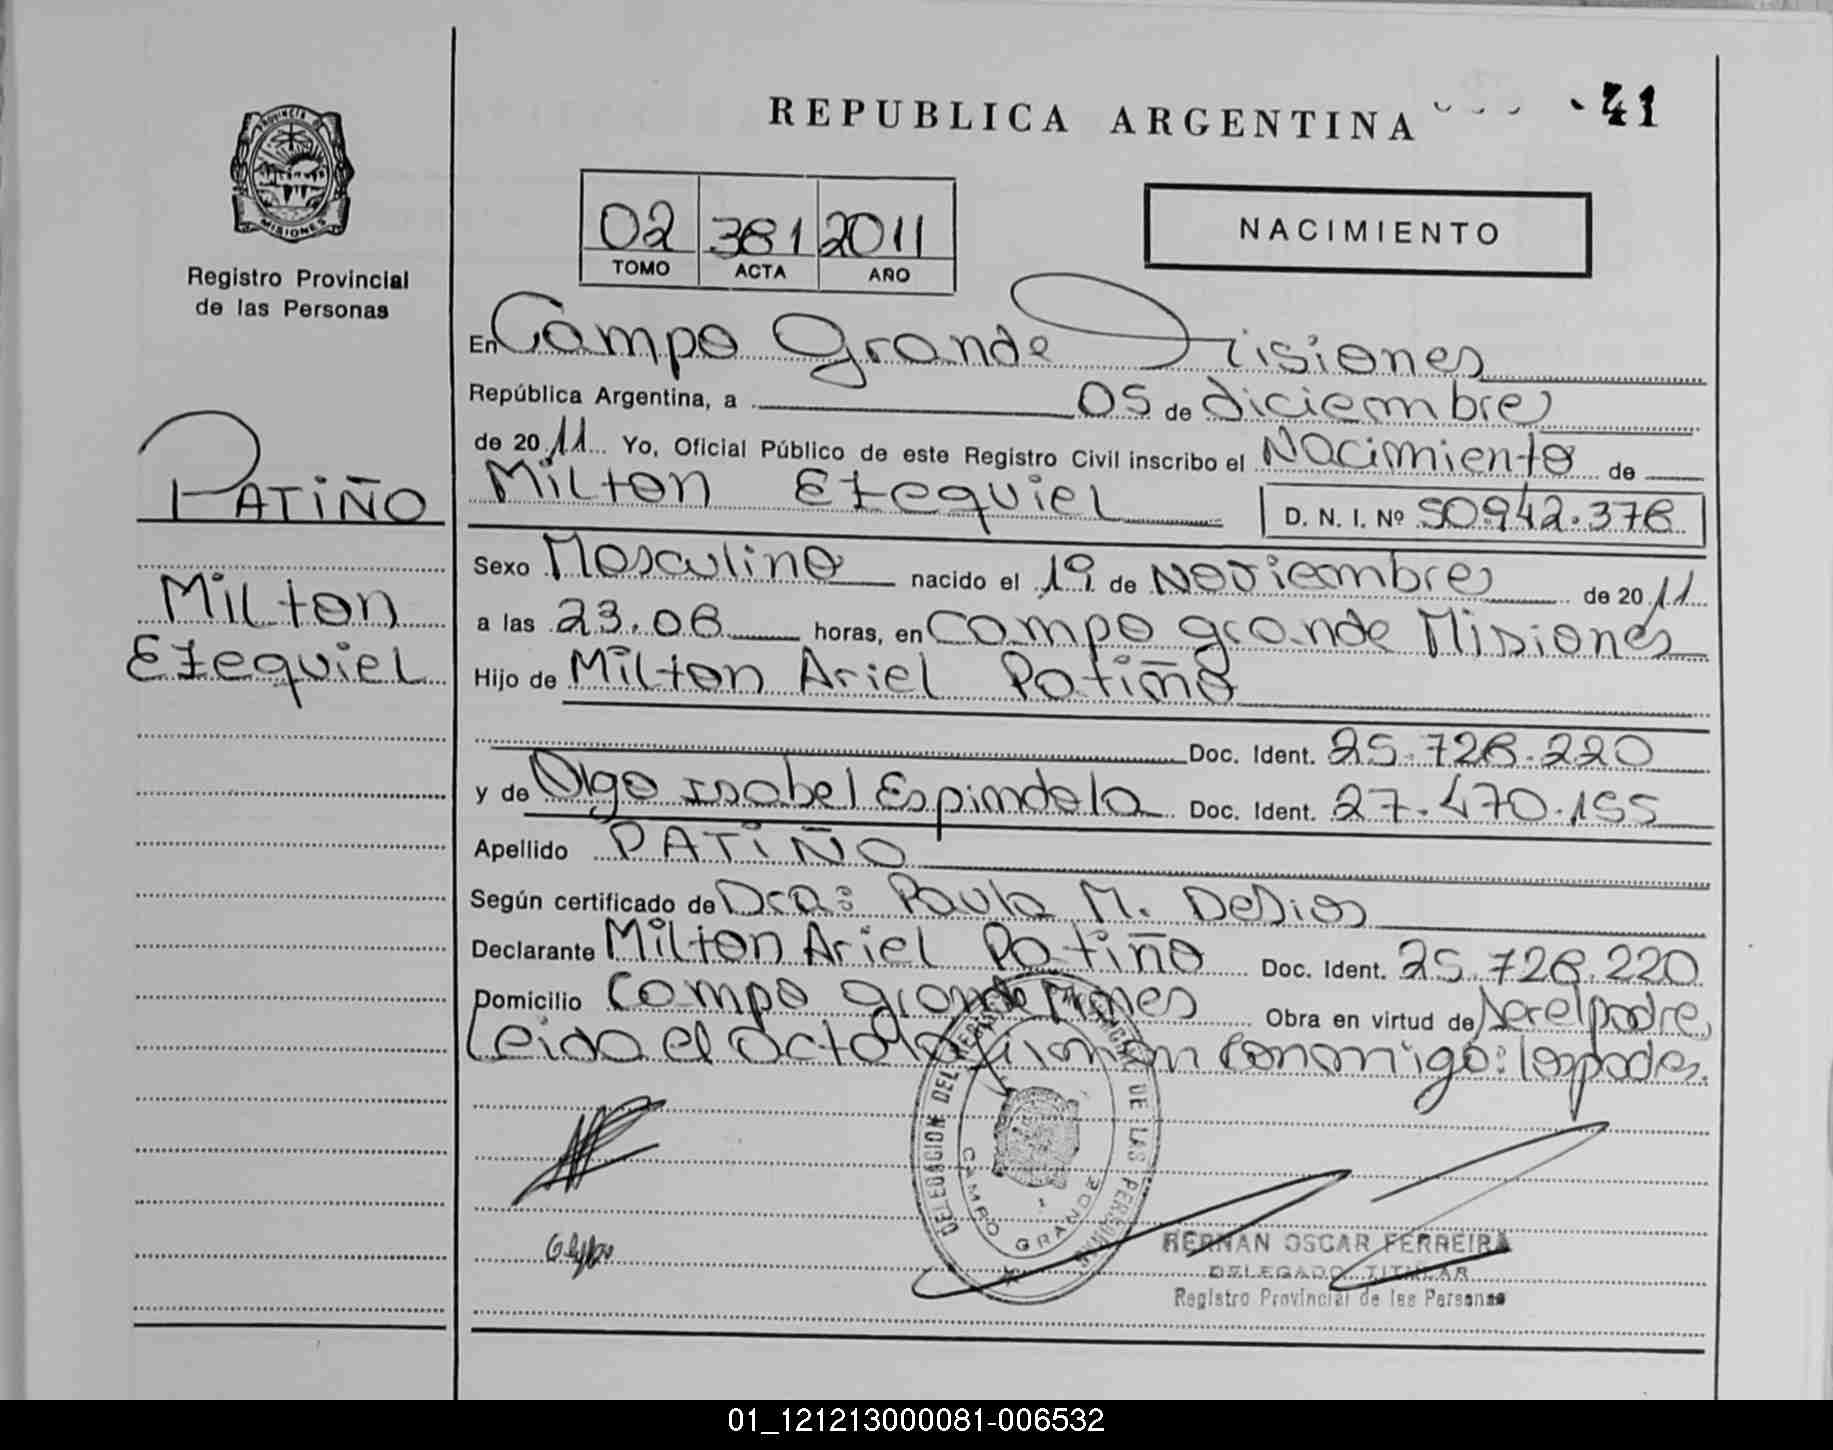 REPUBLICA ARGENTINA
41
PROVINCIA DE
MISIONES
Registro Provincial
de las Personas
02 381 2011
TOMO ACTA AÑO
NACIMIENTO
En Campo Grande Misiones
República Argentina, a 05 de diciembre
de 2011 Yo, Oficial Público de este Registro Civil inscribo el Nacimiento de
Milton Ezequiel D. N. I. Nº 50.942.378
PATIÑO
Milton
Ezequiel
Sexo Masculino nacido el 19 de Noviembre de 2011
a las 23.08 horas, en Campo grande Misiones
Hijo de Milton Ariel Patiño
Doc. Ident. 25.728.220
y de Olga Isabel Espindola Doc. Ident. 27.470.155
Apellido PATIÑO
Según certificado de Dra: Paula M. DeDios
Declarante Milton Ariel Patiño Doc. Ident. 25.728.220
Domicilio Campo grande Mnes Obra en virtud de ser el padre
Leida el acta la firman conmigo: los padres.
DELEGACION DEL REGISTRO PROVINCIAL DE LAS PERSONAS
CAMPO GRANDE
HERNAN OSCAR FERREIRA
DELEGADO TITULAR
Registro Provincial de las Personas
01_121213000081-006532